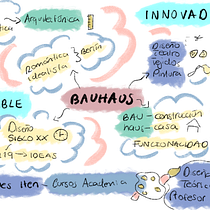 Arquitectónica
INNOVAD
tica
Romántica
idealista
Berlín
Diseño
Teatro
Tejido
Pintura
BLE
BAUHAUS
BAU - construcción
haus - casa
FUNCIONALIDAD
Diseño
Siglo XX
+
919 → IDEAS
es Iten
Cursos Academia
Diseña
Teórica
Profesor